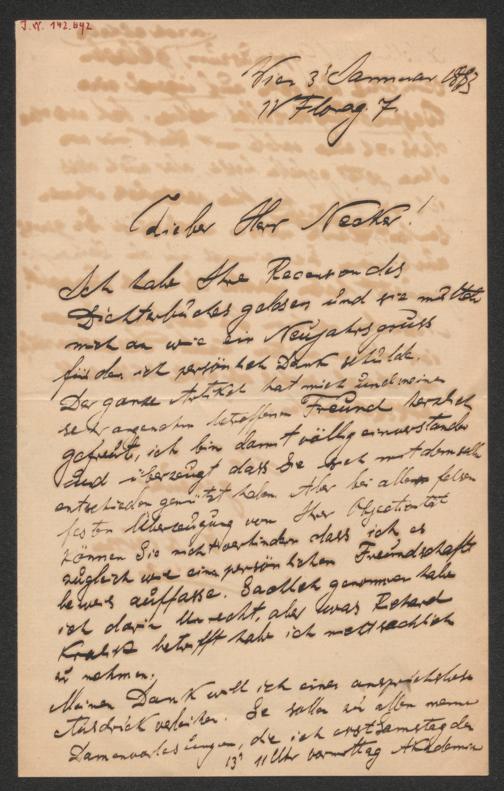 J.N. 142.642
Wien 3t Jannuar 1883
IV Florag. 7.
Lieber Herr Necker!
Ich habe Ihre Recension des
Dichterbuches gelesen und sie muthete
mich an wie ein Neujahrsgruss
für den ich persönlich Dank schulde.
Der ganze Artikel hat mich und meinen
sehr angenehm betroffenen Freund herzlich
gefreut, ich bin damit völlig einverstanden
und überzeugt dass Sie sich mit demselben
entschieden genützt haben. Aber bei aller felsen
festen Überzeugung von Ihrer Objectivität
können Sie nicht verhindern dass ich es
zugleich wie einen persönlichen Freundschafts
beweis auffasse. Sachlich genommen habe
ich darin Unrecht, aber was Richard
Kralik betrifft habe ich
zu nehmen.
Meinen Dank will ich einen anspruchslosen
Ausdruck verleihen. Sie sollen zu allen meinen
Damenvorlesungen, die ich erst Samstag den
13t 11 Uhr vormittag Akademie